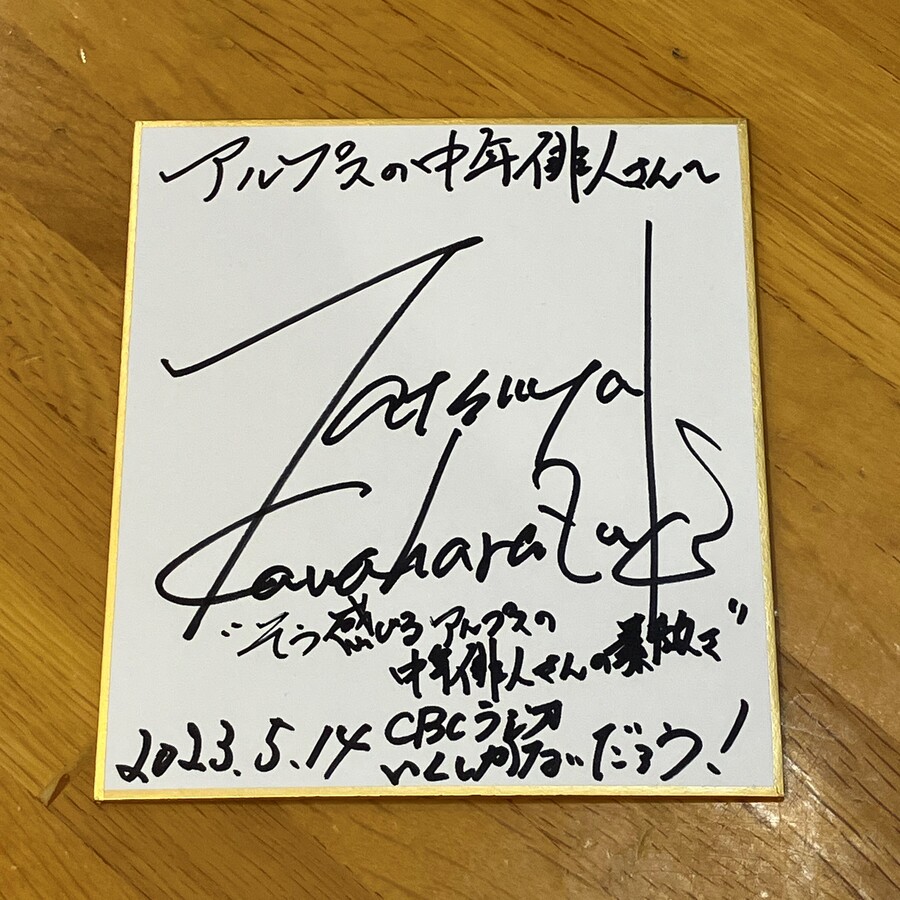 アルプスの中年俳人さんへ
Tatsuya
Kawahara
"そう感じるアルプスの
中年俳人さんの素敵さ"
2023.5.14 CBCラジオ
いくしかないだろう!